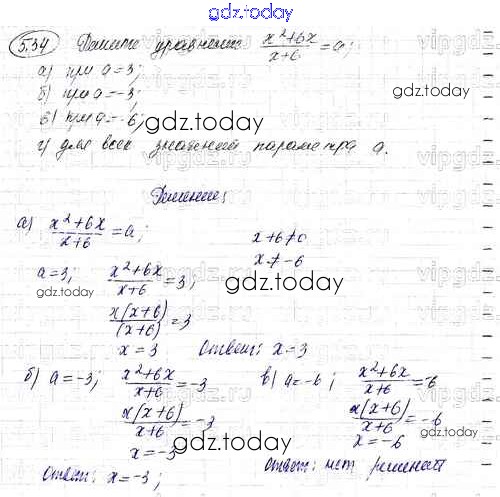 gdz.today
5.34 Решите уравнение x²+6x/x+6 = a;
а) при a=3;
б) при a=-3;
в) при a=-6;
г) для всех значений параметра a.
gdz.today
Решение:
а) x²+6x/x+6 = a; x+6≠0
x≠-6
a=3; x²+6x/x+6 = 3;
gdz.today
gdz.today
x(x+6)/(x+6) = 3
x = 3 Ответ: x=3
б) a=-3; x²+6x/x+6 = -3 в) a=-6; x²+6x/x+6 = -6
x(x+6)/x+6 = -3 x(x+6)/x+6 = -6
x=-3 x=-6
gdz.today
Ответ: x=-3; Ответ: нет решений